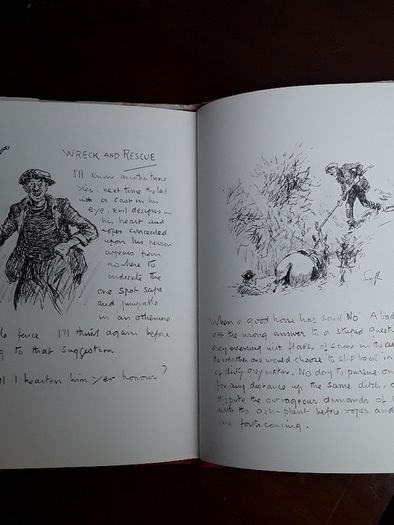 WRECK AND RESCUE
I'll know another time
Yes. next time the lad
with a cast in his
eye, evil designs in
his heart and
ropes concealed
upon his person
appears from
nowhere to
indicate the
one spot safe
and jumpable
in an otherwise
fence I'll think again before
to that suggestion
I hearten him yer honour?
When a good horse has said No. A bad
the wrong answer to a stupid
grey evening wit flakes of snow in the
would choose to slip back in
of dirty grey water. No day to pursue
for any distance up the same ditch,
dispute the outrageous demands of
with the ash-plant before ropes and
are forthcoming.